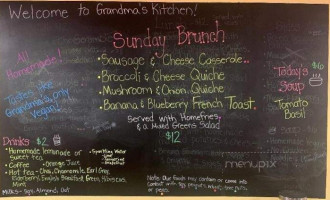 Welcome to Grandma's Kitchen!
Sunday Brunch
All
Homemade!
Tastes like
Grandma's, only
Vegan!
• Sausage & Cheese Casserole..
• Broccoli & Cheese Quiche
• Mushroom & Onion Quiche
• Banana & Blueberry French Toast.
Served with Homefries,
& a Mixed Greens Salad
$12
Today's $6
Soup
Tomato
Basil
Drinks $2
• Homemade lemonade or
sweet tea
• Coffee • Orange Juice
• Hot tea - Chai, Chamomile, Earl Grey,
Elderberry, English Breakfast, Green, Hibiscus,
Mint
Milks - Soy, Almond, Oat
• Sparkling Water
Note: Our foods may contain or come into
contact with soy, peanuts, wheat, tree nuts,
menupix